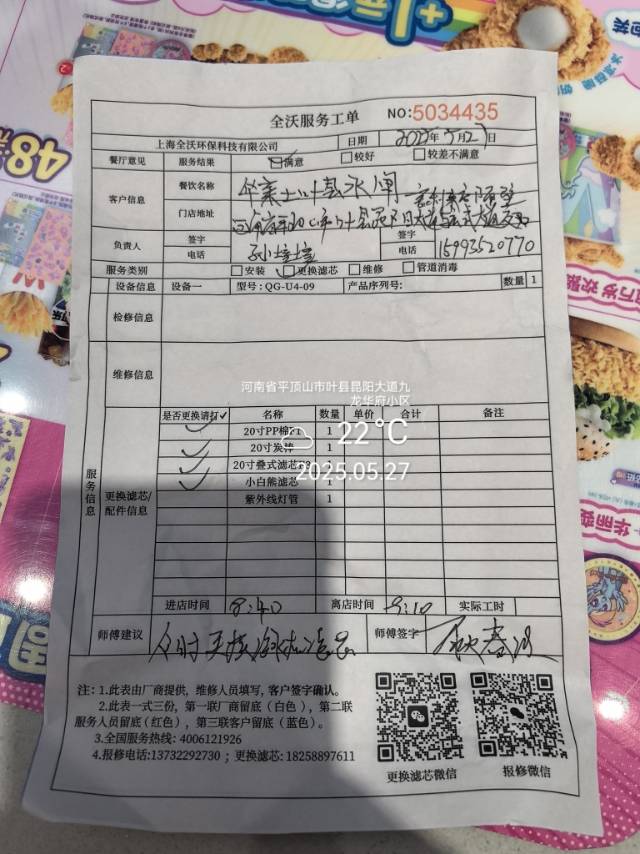 48
+1元
全沃服务工单 NO:5034435
上海全沃环保科技有限公司 日期 2025年5月27日
餐厅意见 服务结果 满意 较好 较差不满意
客户信息 餐饮名称 华莱士叶县水闸
门店地址
负责人 签字 签字
电话 电话 15993520770
服务类别 安装 更换滤芯 维修 管道消毒
设备信息 设备一 型号:QG-U4-09 产品序列号: 数量 1
检修信息
维修信息
河南省平顶山市叶县昆阳大道九
龙华府小区
22℃
2025.05.27
服务信息
更换滤芯/
配件信息
是否更换请打✓ 名称 数量 单价 合计 备注
✓ 20寸PP棉 1
✓ 20寸炭棒 1
✓ 20寸叠式滤芯 1
✓ 小白熊滤芯 1
紫外线灯管 1
进店时间 8:40 离店时间 9:10 实际工时
师傅建议 及时更换滤芯 师傅签字
注:1.此表由厂商提供,维修人员填写,客户签字确认。
2.此表一式三份,第一联厂商留底(白色),第二联
服务人员留底(红色),第三联客户留底(蓝色)。
3.全国服务热线:4006121926
4.报修电话:13732292730;更换滤芯:18258897611
更换滤芯微信 报修微信